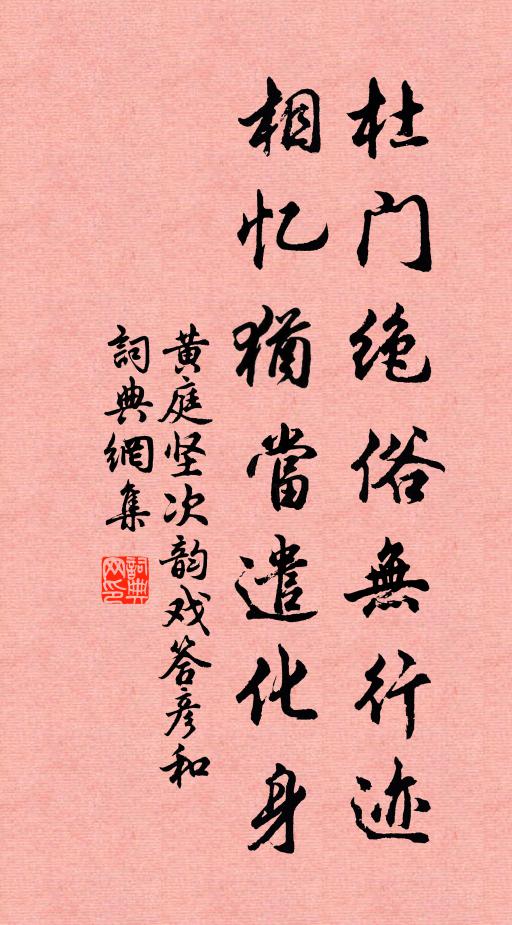 杜门绝俗無行迹
相忆猶當遣化身
黄庭坚次韵戏答彦和
詞典網集
詞典网印